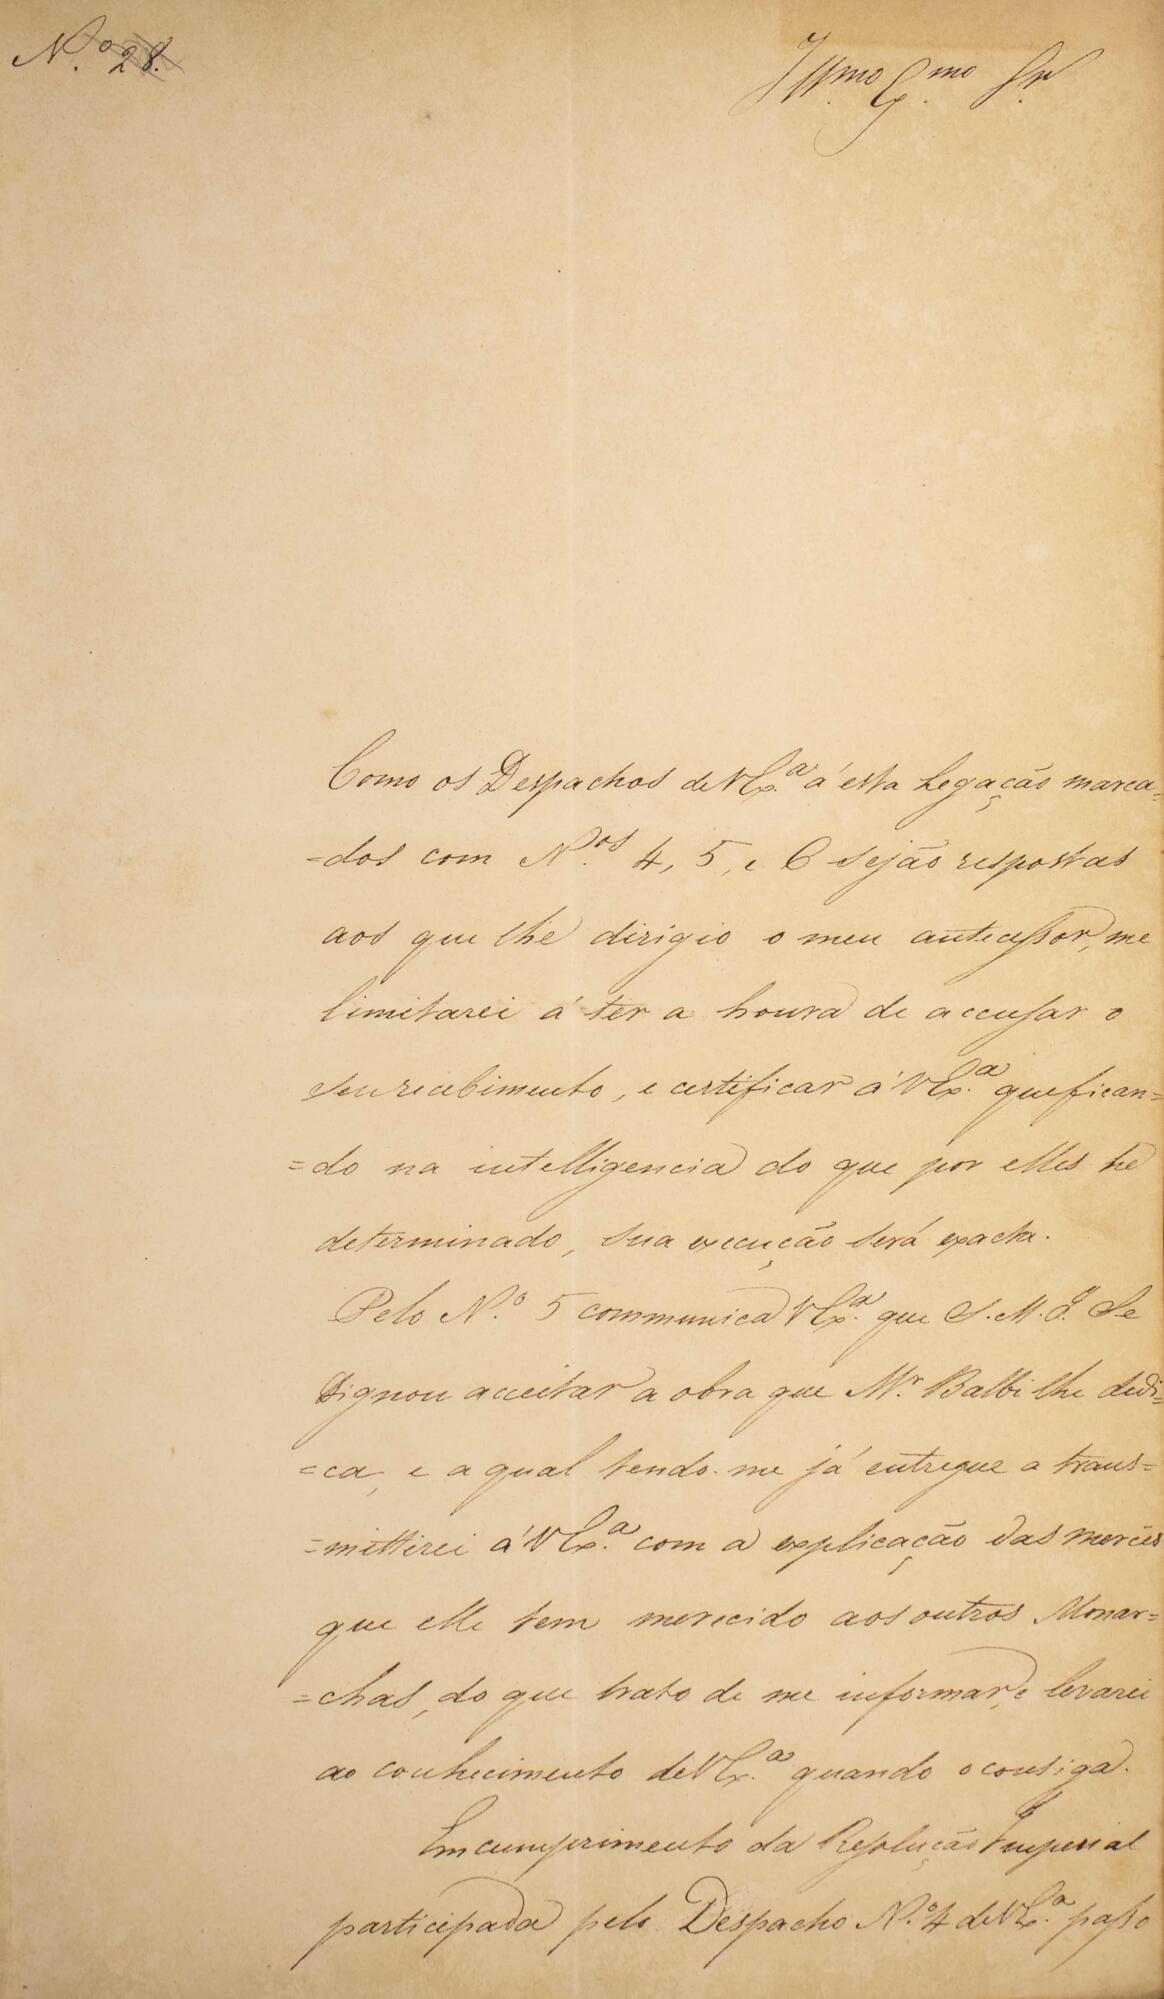 N.º 28.
Illmo Exmo Sr
Como os Despachos de V Ex.ª á esta Legação marca=
=dos com N.ºs 4, 5, e 6 sejão respostas
aos que lhe dirigio o meu antecessor, me
limitarei á ter a honra de accusar o
seu recebimento, e certificar á V Ex.ª que fican=
=do na intelligencia do que por elles he
determinado, sua execução será exacta.
Pelo N.º 5 communica V Ex.ª que S. M. I. Se
Dignou acceitar a obra que Mr. Balbi lhe dedi=
=ca, e a qual tendo-me já entregue a trans=
=mittirei á V Ex.ª com a explicação das mercês
que elle tem merecido aos outros Monar=
=chas, do que trato de me informar, e levarei
ao conhecimento de V Ex.ª quando o consiga.
Em cumprimento da Resolução Imperial
participada pelo Despacho N.º 4 de V Ex.ª passo